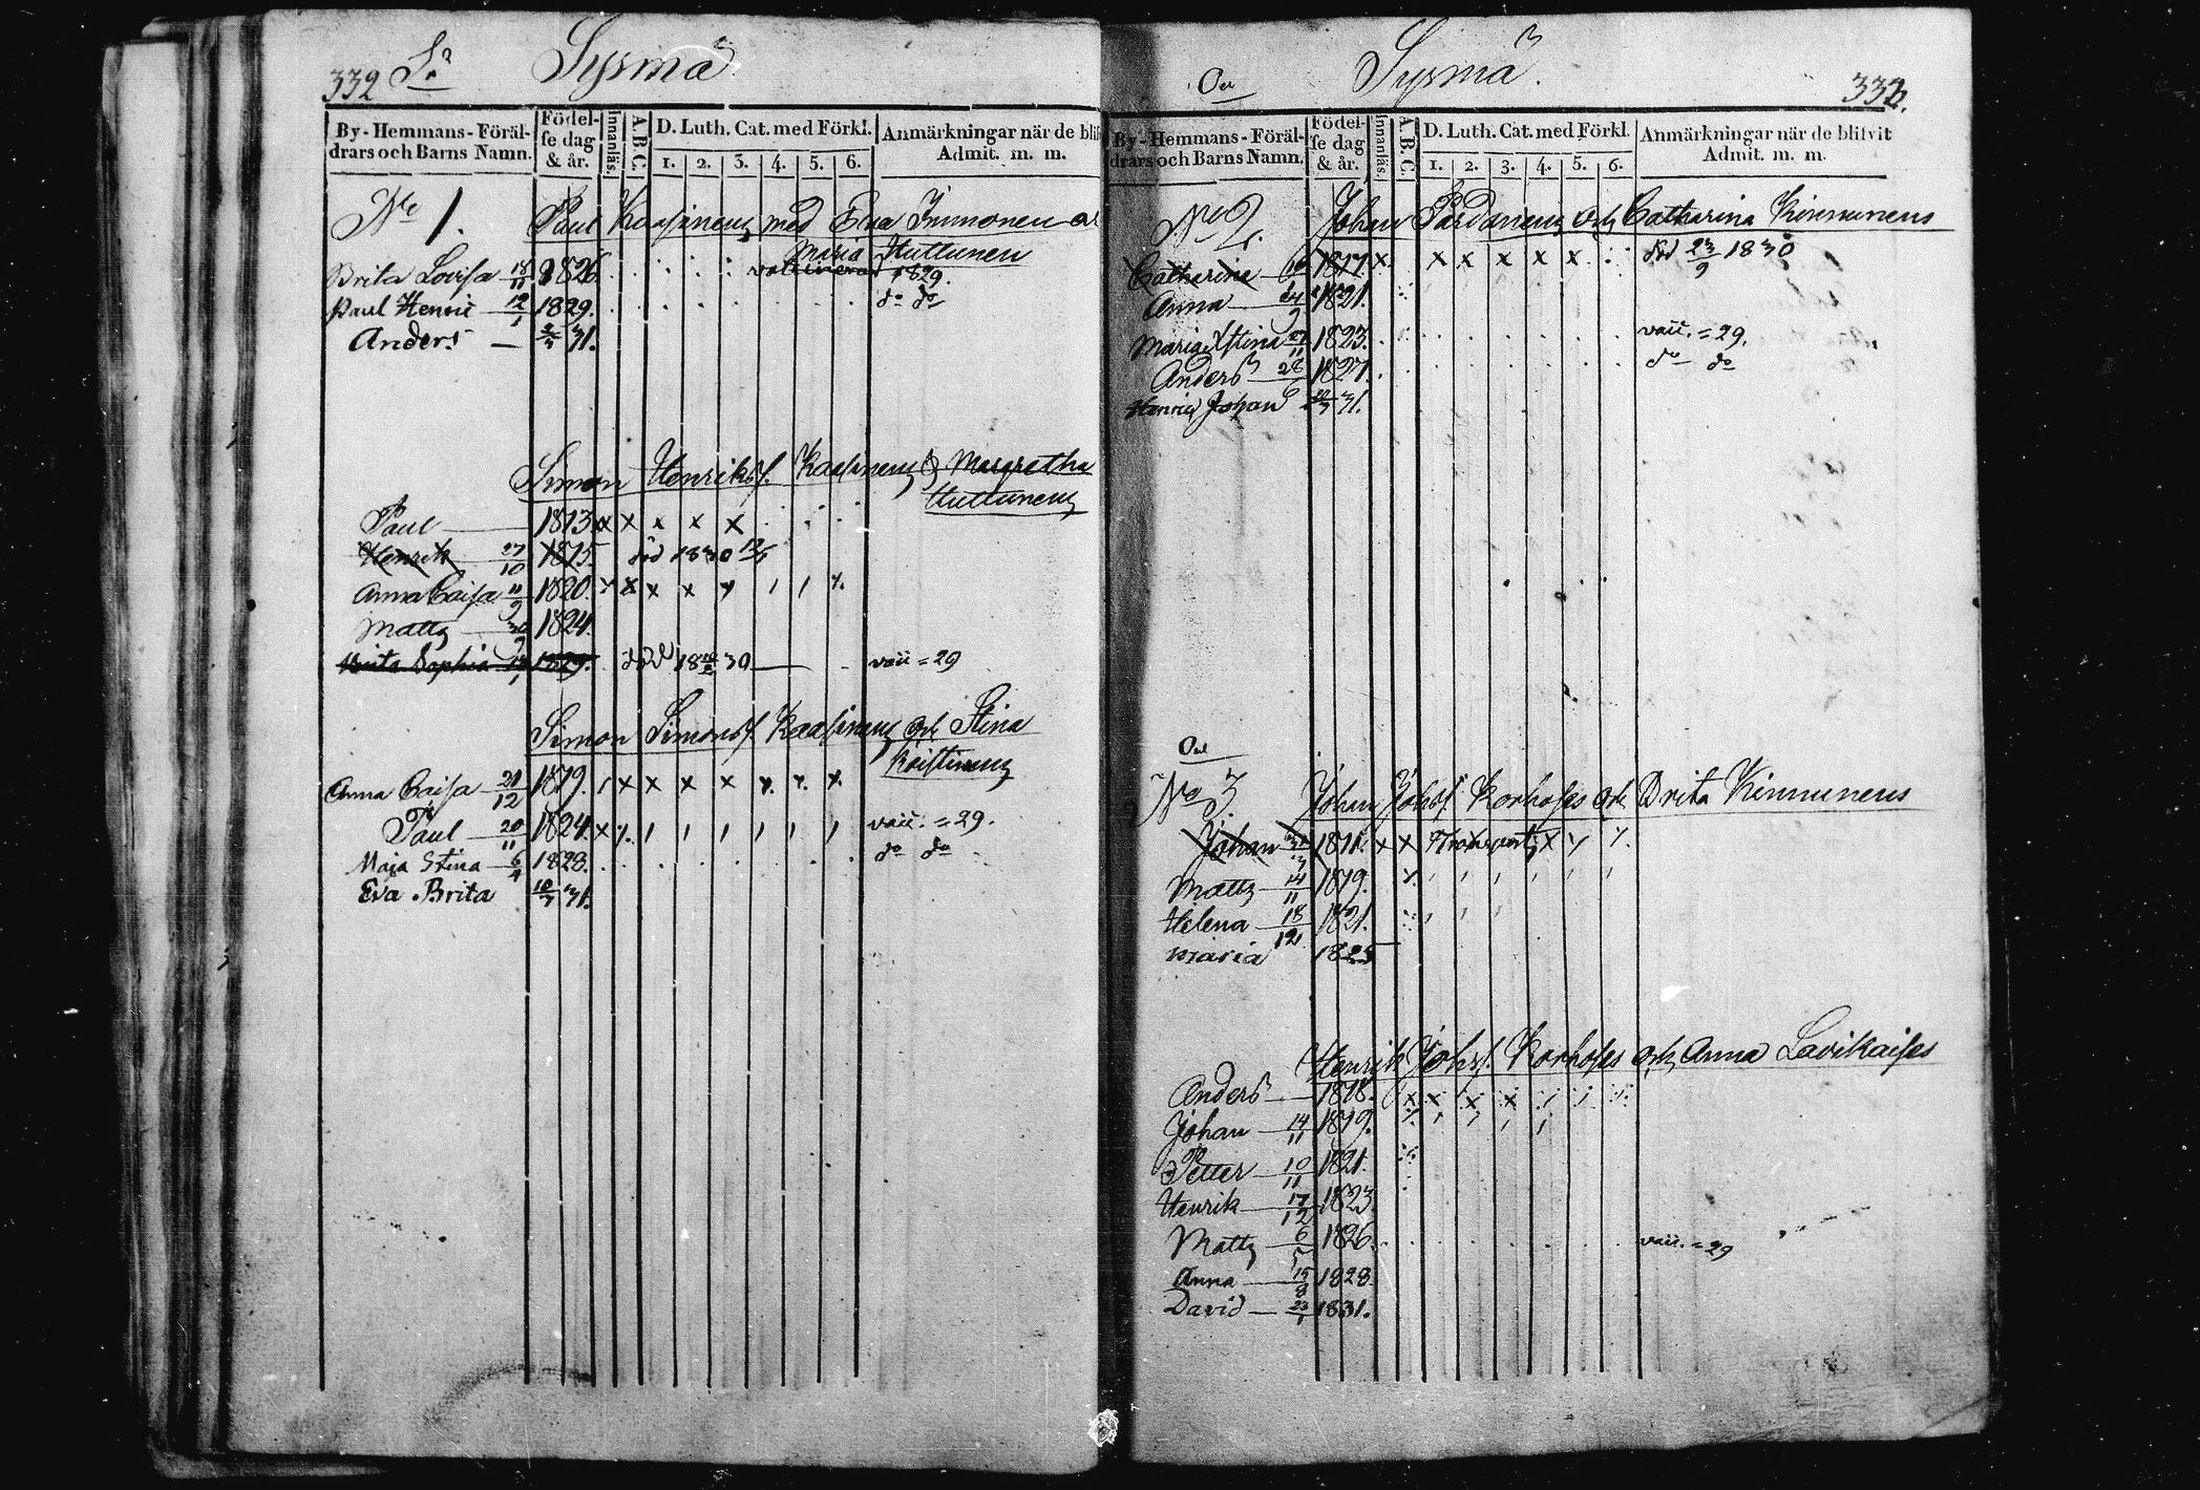 332 Sysmä
By-Hemmans-Föräl-drars och Barns Namn. Födel-se dag & år. Innanläs. A.B.C. D. Luth. Cat. med Förkl. 1. 2. 3. 4. 5. 6. Anmärkningar när de blif
Admit. m. m.
No 1. Paul Kaasinen med Eva Immonen
Maria Huttunen
Brita Lovisa 18/11 1826 1829.
Paul Henric 12/1 1829. do do
Anders 31.
Simon Henrikss. Kaasinen & Margretha
Huttunen
Paul 1813 x x x x x
Henrik 27/10 1815. död 1830
Anna Caisa 11/9 1820. x x x x
Matts 1824.
Brita Sophia 1829. död 30 vacc = 29
Simon Simonss. Kaasinen och Stina
Anna Caisa 21/12 1819. x x x x
Paul 20/11 1824. vacc. = 29.
Maja Stina 1828. do do
Eva Brita 31.
Sysmä.
By-Hemmans-Föräl-drars och Barns Namn. Födel-se dag & år. Innanläs. A.B.C. D. Luth. Cat. med Förkl. 1. 2. 3. 4. 5. 6. Anmärkningar när de blifvit
Admit. m. m.
No 2. Johan Pardanen och Catharina Kinnunen
Catharina 1817. x x x x x x död 23/9 1830
Anna 24/9 1821.
Maria Stina 1823. vacc. = 29.
Anders 28 1827. do do
Henric Johan 31.
No 3. Johan Johss. Korhoses och Brita Kinnunens
Johan 1811. x x x
Matts 14/11 1819.
Helena 18/12 1821.
Maria 1825
Henrik Johss. Korhoses och Anna Lavikaises
Anders 1818. x x x x
Johan 14/11 1819.
Petter 10/11 1821.
Henrik 17/12 1823.
Matts 6 1826. vacc. = 29
Anna 15/8 1828.
David 23/1 1831.